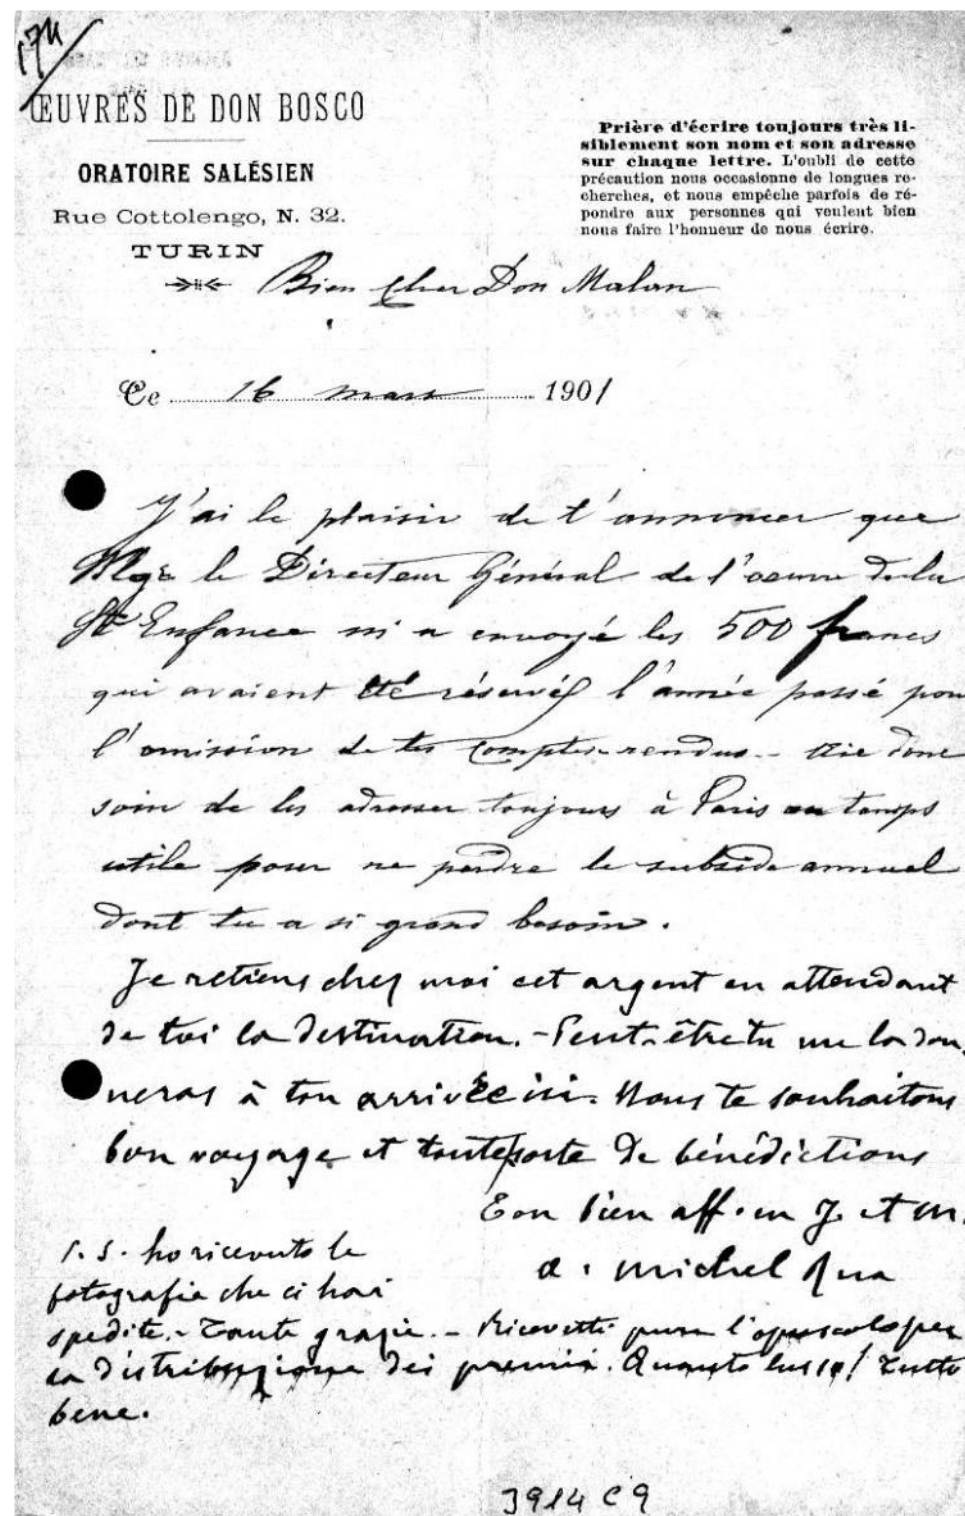 174
ŒUVRES DE DON BOSCO
ORATOIRE SALÉSIEN
Rue Cottolengo, N. 32.
TURIN
Prière d'écrire toujours très li-
siblement son nom et son adresse
sur chaque lettre. L'oubli de cette
précaution nous occasionne de longues re-
cherches, et nous empêche parfois de ré-
pondre aux personnes qui veulent bien
nous faire l'honneur de nous écrire.
Bien cher Don Malan
Ce 16 mars 1901
J'ai le plaisir de t'annoncer que
Mgr le Directeur Général de l'oeuvre de la
Ste Enfance m'a envoyé les 500 francs
qui avaient été réservés l'année passé pour
l'omission de tes comptes-rendus. - Aie donc
soin de les adresser toujours à Paris en temps
utile pour ne perdre le subside annuel
dont tu a si grand besoin.
Je retiens chez moi cet argent en attendant
de toi la destination. - Peut-être tu me la don-
neras à ton arrivée ici. Nous te souhaitons
bon voyage et toute sorte de bénédictions
Ton bien aff. en J. et M.
Michel Rua
P.S. ho ricevuto le
fotografie che ci hai
spedite. - Tante grazie. - Ricevetti pure l'opuscolo per
la distribuzione dei premii. Quanto lusso! Tutto
bene.
3914 C 9